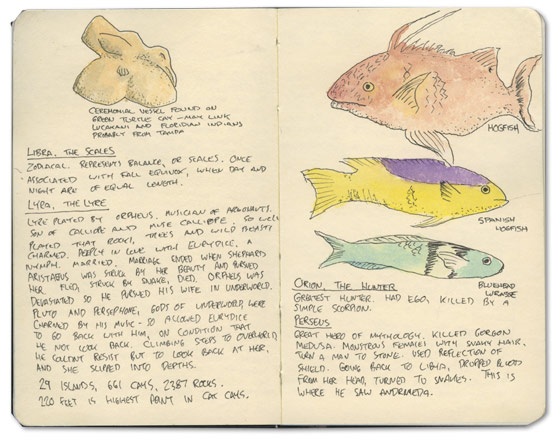 CEREMONIAL VESSEL FOUND ON
GREEN TURTLE CAY - MAY LINK
LUCAYANS AND FLORIDIAN INDIANS
PROBABLY FROM TAMPA
LIBRA, THE SCALES
ZODIACAL. REPRESENTS BALANCE, OR SCALES. ONCE
ASSOCIATED WITH FALL EQUINOX, WHEN DAY AND
NIGHT ARE OF EQUAL LENGTH.
LYRA, THE LYRE
LYRE PLAYED BY ORPHEUS, MUSICIAN OF ARGONAUTS,
SON OF CALLIOPE AND MUSE CALLIOPE. SO WELL
PLAYED THAT ROCKS, TREES AND WILD BEASTS
CHARMED. DEEPLY IN LOVE WITH EURYDICE, A
NYMPH. MARRIED, MARRIAGE ENDED WHEN SHEPHARD
ARISTAEUS WAS STRUCK BY HER BEAUTY AND PURSUED
HER. FLED, STRUCK BY SNAKE, DIED. ORPHEUS WAS
DEVASTATED SO HE PURSUED HIS WIFE IN UNDERWORLD.
PLUTO AND PERSEPHONE, GODS OF UNDERWORLD WERE
CHARMED BY HIS MUSIC - SO ALLOWED EURYDICE
TO GO BACK WITH HIM, ON CONDITION THAT
HE NOT LOOK BACK. CLIMBING STEPS TO OVERWORLD
HE COULDNT RESIST BUT TO LOOK BACK AT HER,
AND SHE SLIPPED INTO DEPTHS.
29 ISLANDS, 661 CAYS, 2387 ROCKS.
220 FEET IS HIGHEST POINT IN CAT CAYS.
HOGFISH
SPANISH
HOGFISH
BLUEHEAD
WRASSE
ORION, THE HUNTER
GREATEST HUNTER. HAD EGO, KILLED BY A
SIMPLE SCORPION.
PERSEUS
GREAT HERO OF MYTHOLOGY. KILLED GORGON
MEDUSA. MONSTROUS FEMALES WITH SNAKY HAIR,
TURN A MAN TO STONE. USED REFLECTION OF
SHIELD. GOING BACK TO LIBYA, DROPPED BLOOD
FROM HER HEAD, TURNED TO SNAKES. THIS IS
WHERE HE SAW ANDROMEDA.